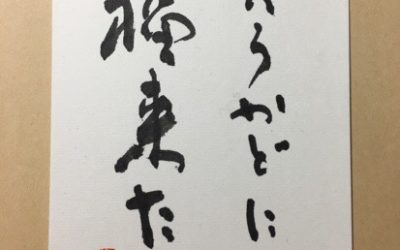 らうかどに
福来た